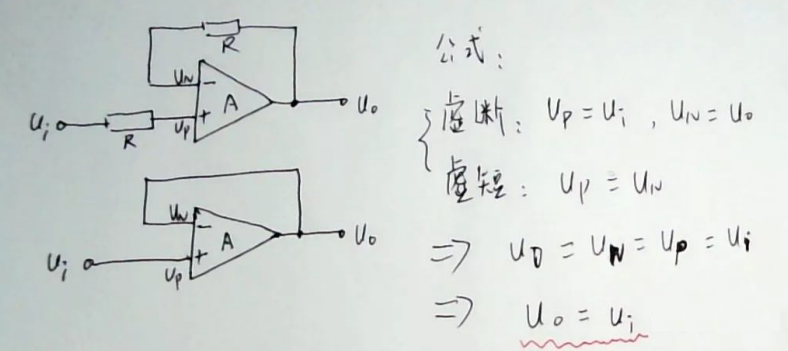 R
U_N
-
A
+
U_i
R
U_P
U_o
U_N
-
A
+
U_i
U_P
U_o
公式:
虚断: U_P = U_i , U_N = U_o
虚短: U_P = U_N
⇒ U_O = U_N = U_P = U_i
⇒ U_o = U_i